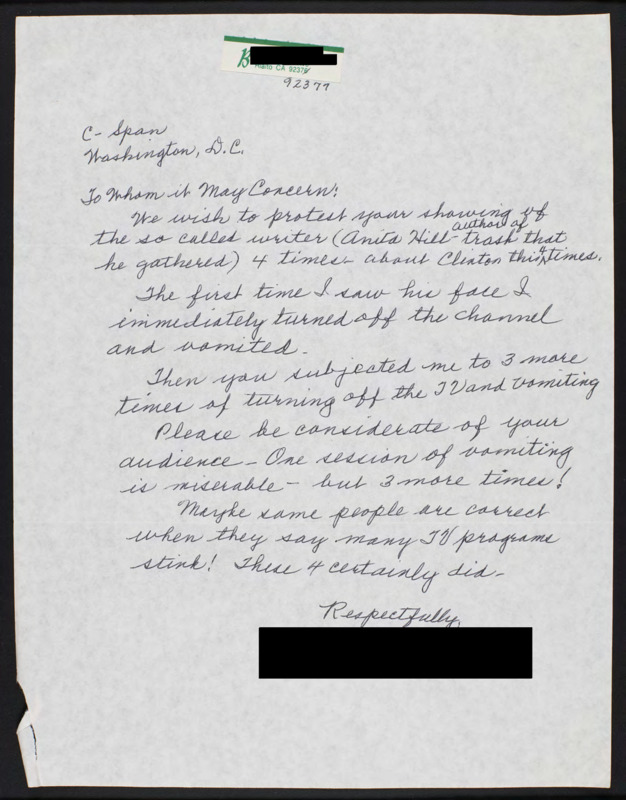 Rialto CA 9237
92377
C-Span
Washington, D.C.
To Whom it May Concern:
We wish to protest your showing of
the so called writer (Anita Hill - author of trash that
he gathered) 4 times - about Clinton this 4 times.
The first time I saw his face I
immediately turned off the channel
and vomited.
Then you subjected me to 3 more
times of turning off the TV and vomiting
Please be considerate of your
audience - One session of vomiting
is miserable - but 3 more times!
Maybe some people are correct
when they say many TV programs
stink! These 4 certainly did -
Respectfully,